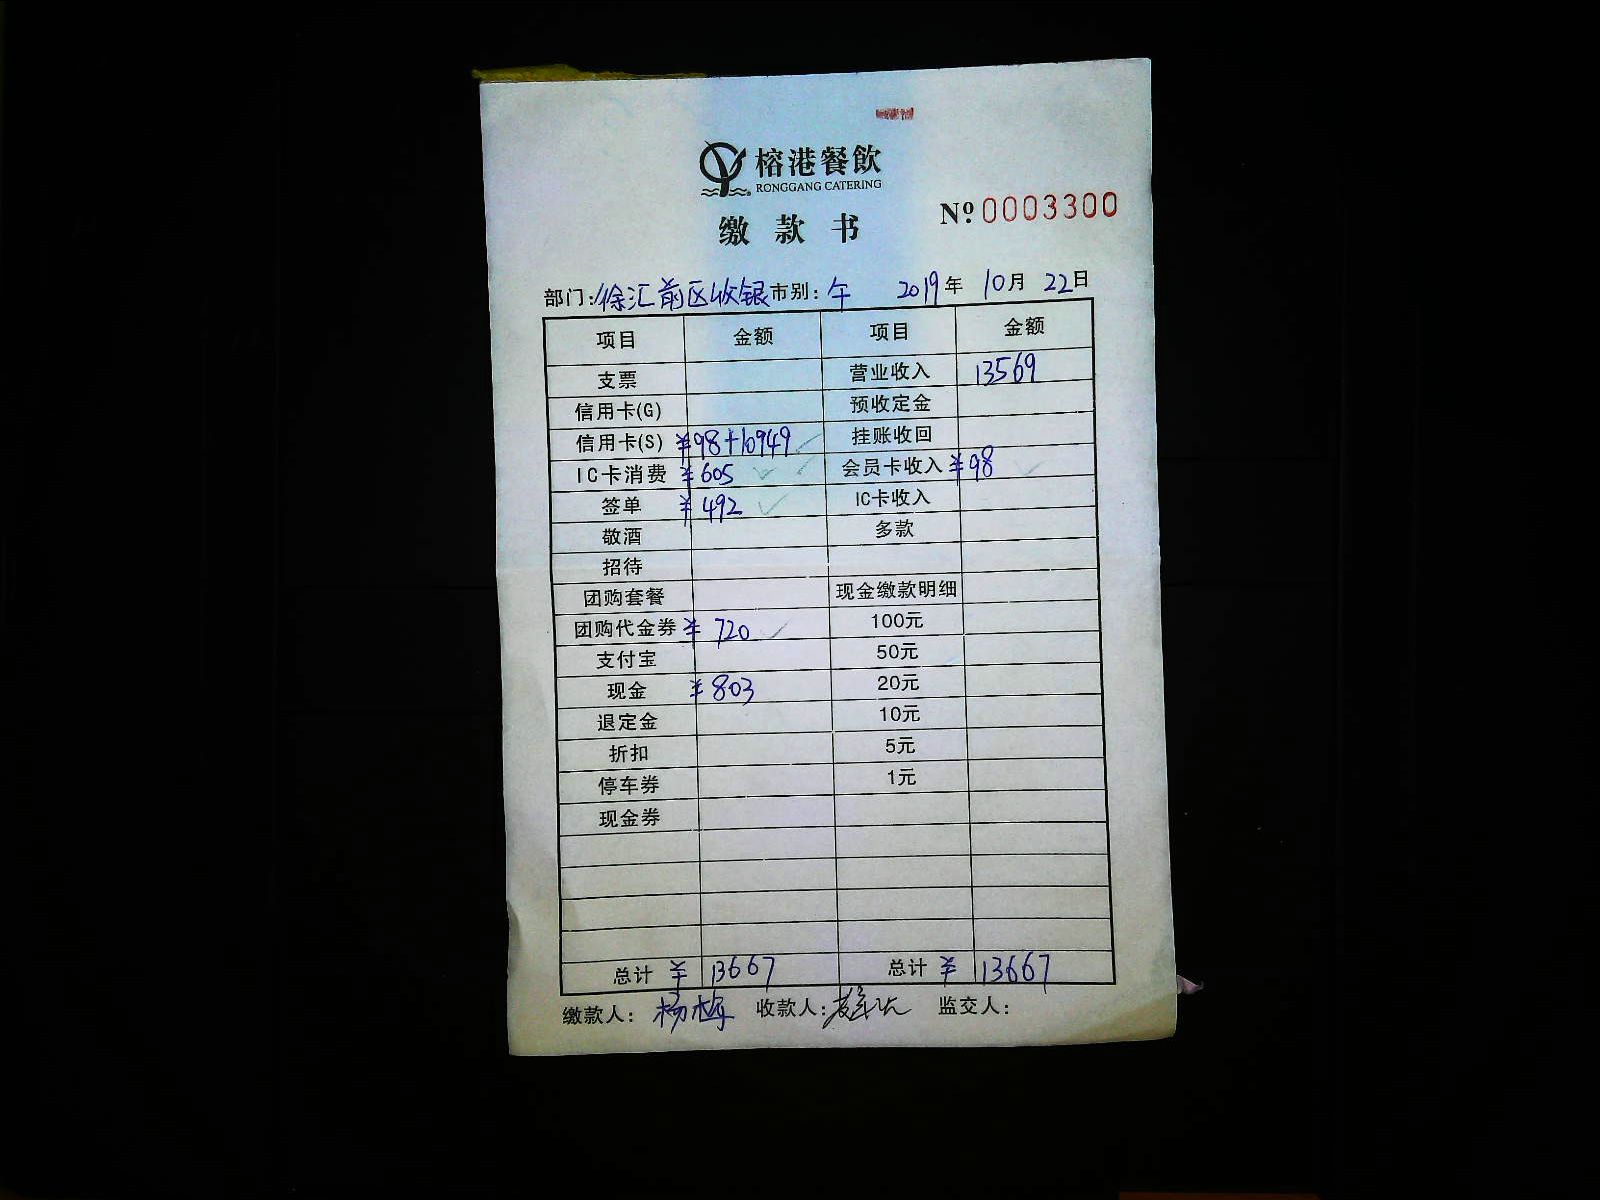 榕港餐飲
RONGGANG CATERING
缴款书
№ 0003300
部门:徐汇前区收银 市别:午 2019年10月22日
项目 金额 项目 金额
支票 营业收入 13569
信用卡(G) 预收定金
信用卡(S) ¥98+10949 挂账收回
IC卡消费 ¥605 会员卡收入 ¥98
签单 ¥492 IC卡收入
敬酒 多款
招待
团购套餐 现金缴款明细
团购代金券 ¥720 100元
支付宝 50元
现金 ¥803 20元
退定金 10元
折扣 5元
停车券 1元
现金券
总计 ¥13667 总计 ¥13667
缴款人:杨梅 收款人: 监交人: